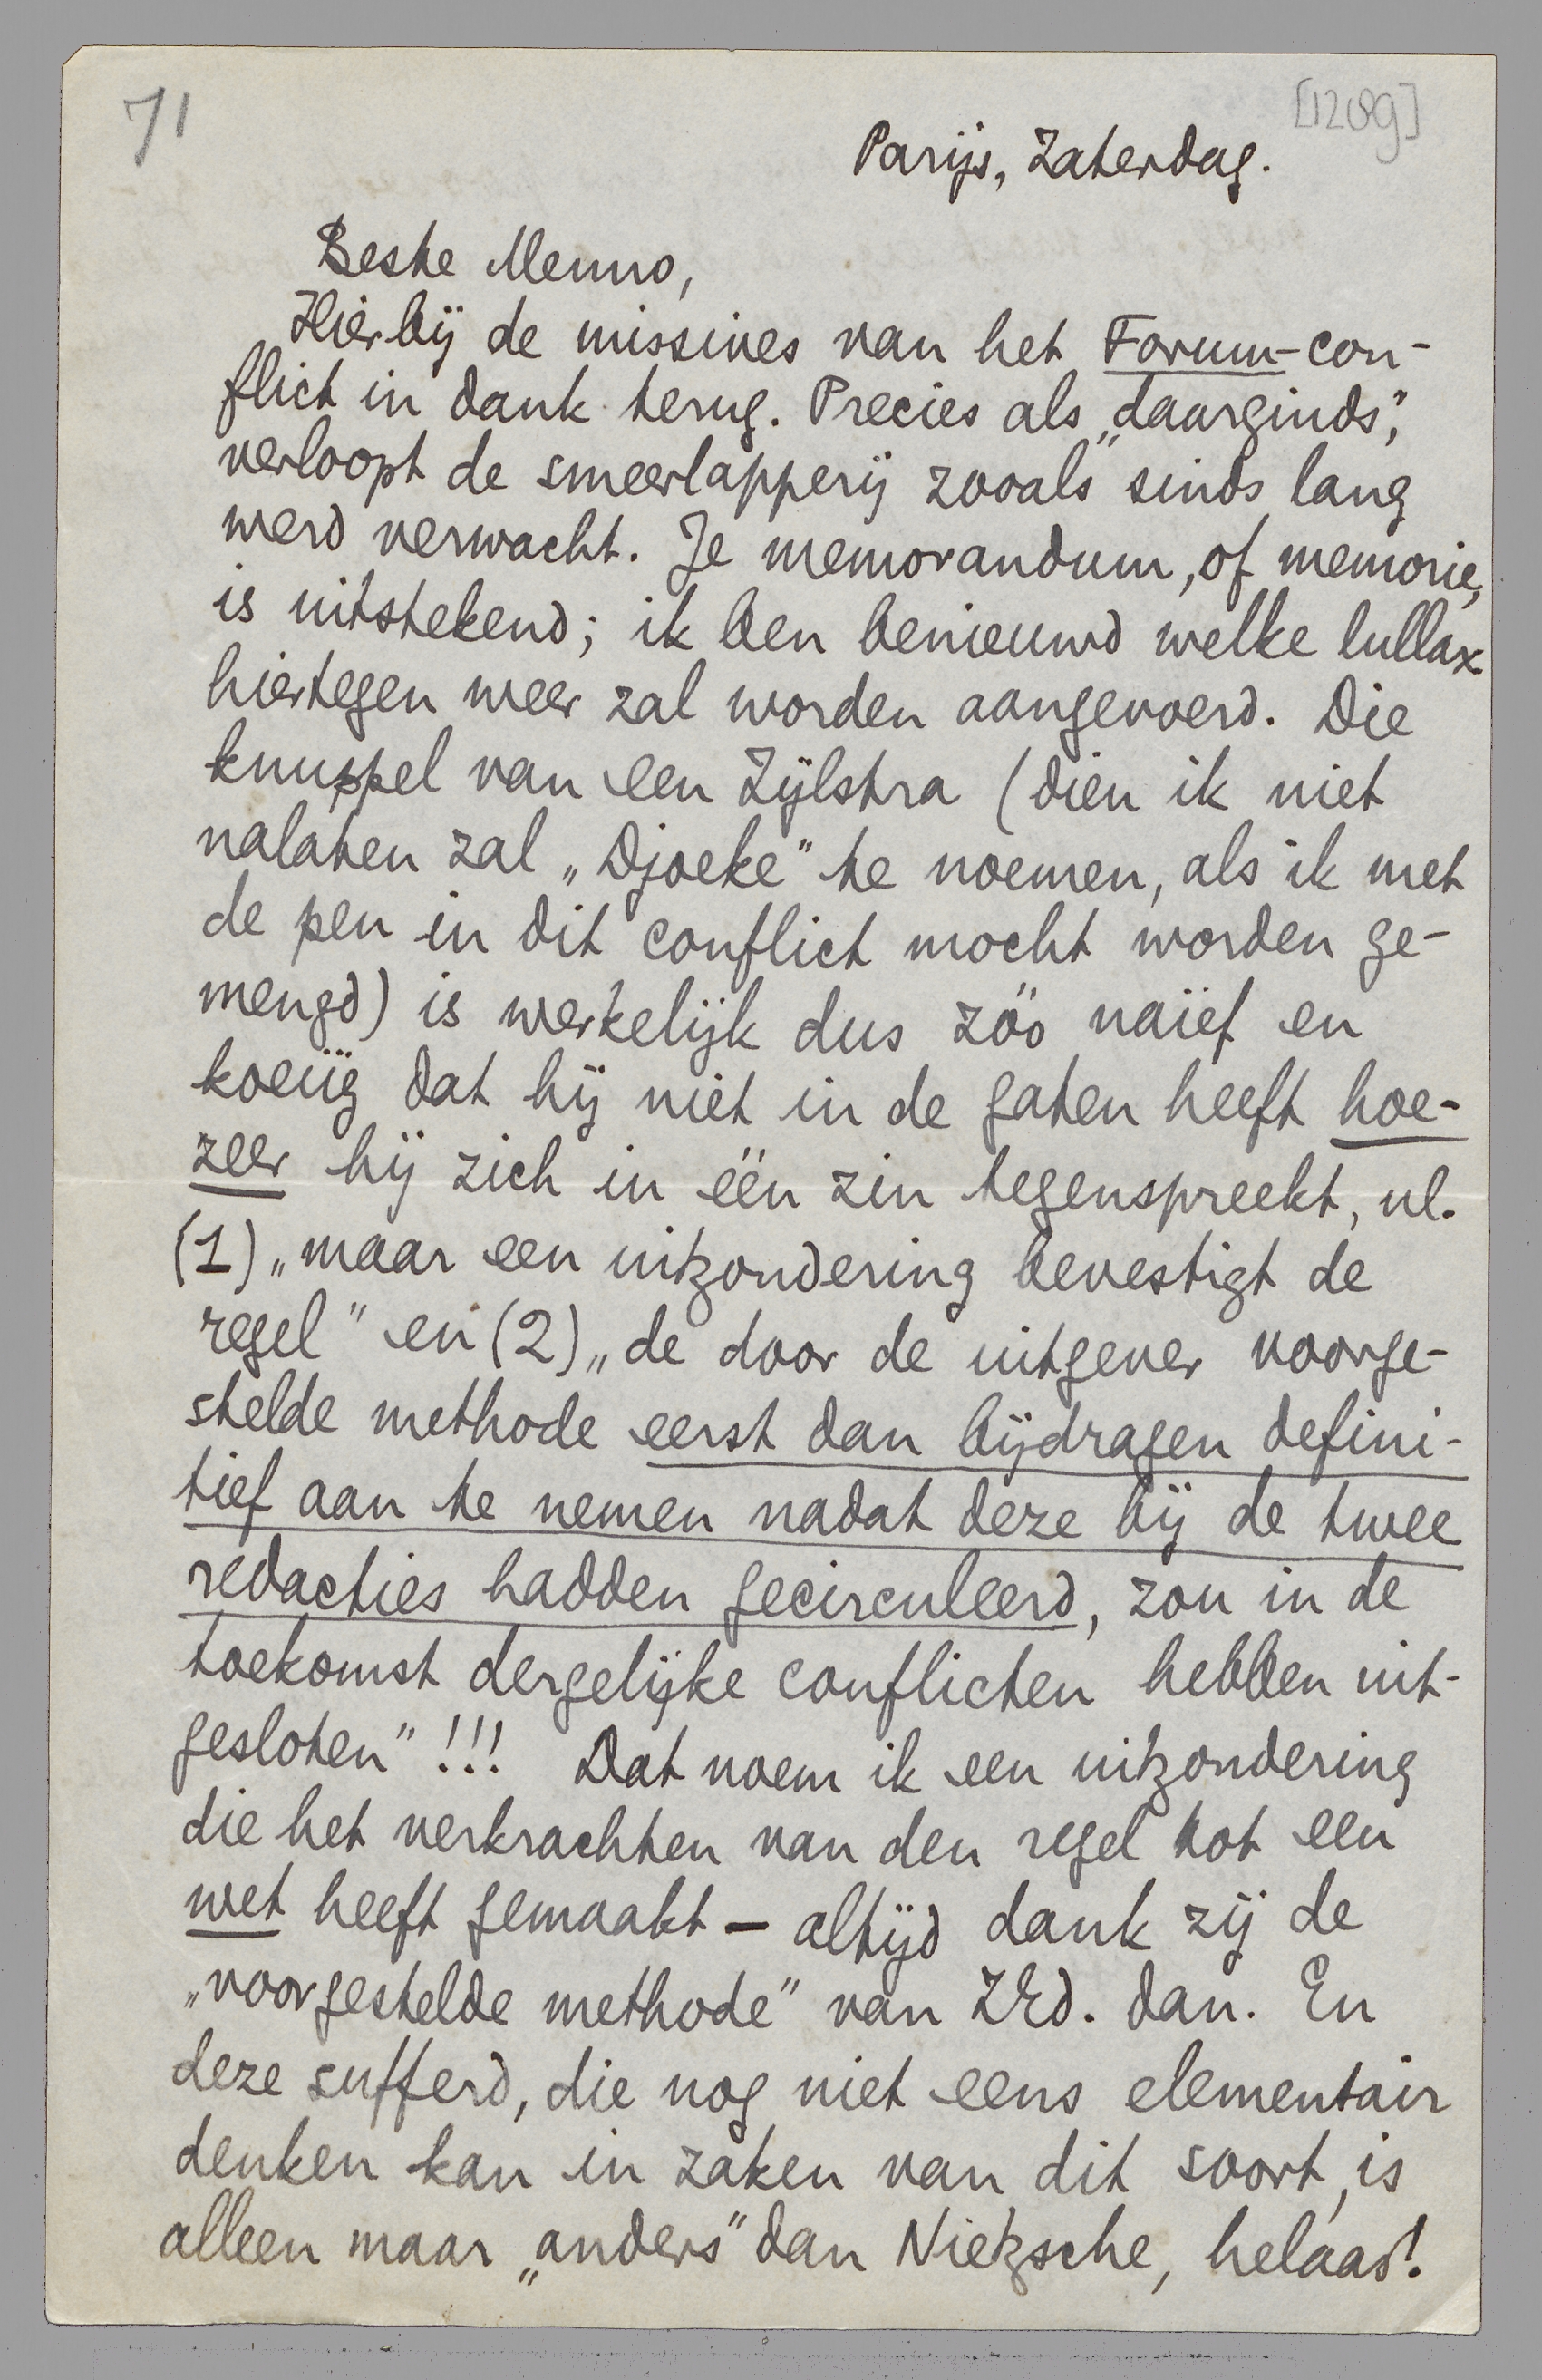 71
[1209]
Parijs, Zaterdag.
Beste Menno,
Hierbij de missives van het Forum-con-
flict in dank terug. Precies als „daarginds",
verloopt de smeerlapperij zooals sinds lang
werd verwacht. Je memorandum, of memorie,
is uitstekend; ik ben benieuwd welke lullax
hiertegen weer zal worden aangevoerd. Die
knuppel van een Zijlstra (dien ik niet
nalaten zal „Djoeke" te noemen, als ik met
de pen in dit conflict mocht worden ge-
mengd) is werkelijk dus zóó naïef en
koeiig dat hij niet in de gaten heeft hoe-
zeer hij zich in één zin tegenspreekt, nl.
(1) „maar een uitzondering bevestigt de
regel" en (2) „de door de uitgever voorge-
stelde methode eerst dan bijdragen defini-
tief aan te nemen nadat deze bij de twee
redacties hadden gecirculeerd, zou in de
toekomst dergelijke conflicten hebben uit-
gesloten" !!! Dat noem ik een uitzondering
die het verkrachten van den regel tot een
wet heeft gemaakt – altijd dank zij de
„voorgestelde methode" van ZEd. dan. En
deze sufferd, die nog niet eens elementair
denken kan in zaken van dit soort, is
alleen maar „anders" dan Nietzsche, helaas!